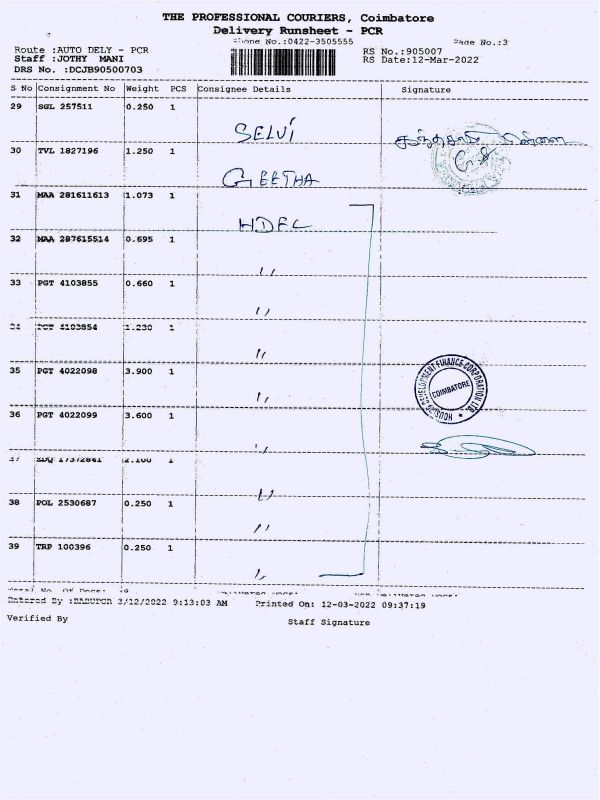 THE PROFESSIONAL COURIERS, Coimbatore
Delivery Runsheet - PCR
Phone No.:0422-3505555 Page No.:3
Route :AUTO DELY - PCR RS No.:905007
Staff :JOTHY MANI RS Date:12-Mar-2022
DRS No. :DCJB90500703
S No Consignment No Weight PCS Consignee Details Signature
29 SGL 257511 0.250 1
SELVI
30 TVL 1827196 1.250 1
GEETHA
31 MAA 281611613 1.073 1
HDFC
32 MAA 287615514 0.695 1
〃
33 PGT 4103855 0.660 1
〃
34 PGT 4103854 1.230 1
〃
35 PGT 4022098 3.900 1
〃
HOUSING DEVELOPMENT FINANCE CORPORATION LTD.
COIMBATORE
36 PGT 4022099 3.600 1
〃
2.100 1
〃
38 POL 2530687 0.250 1
〃
39 TRP 100396 0.250 1
〃
Total No. Of Docs:
Entered By 3/12/2022 9:13:03 AM Printed On: 12-03-2022 09:37:19
Verified By Staff Signature